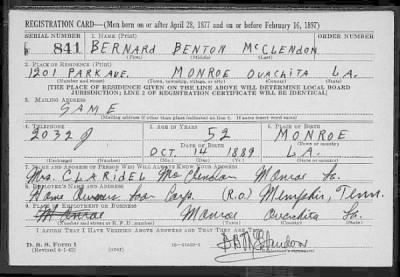 REGISTRATION CARD—(Men born on or after April 28, 1877 and on or before February 16, 1897)
SERIAL NUMBER 1. NAME (Print) ORDER NUMBER
841 BERNARD BENTON MCCLENDON
(First) (Middle) (Last)
2. PLACE OF RESIDENCE (Print)
1201 PARK AVE. MONROE OUACHITA LA.
(Number and street) (Town, township, village, or city) (County) (State)
[THE PLACE OF RESIDENCE GIVEN ON THE LINE ABOVE WILL DETERMINE LOCAL BOARD
JURISDICTION; LINE 2 OF REGISTRATION CERTIFICATE WILL BE IDENTICAL]
3. MAILING ADDRESS
SAME
[Mailing address if other than place indicated on line 2. If same insert word same]
4. TELEPHONE 5. AGE IN YEARS 6. PLACE OF BIRTH
2032 J 52 MONROE
DATE OF BIRTH (Town or county)
OCT. 14 1889 LA.
(Exchange) (Number) (Mo.) (Day) (Yr.) (State or country)
7. NAME AND ADDRESS OF PERSON WHO WILL ALWAYS KNOW YOUR ADDRESS
Mrs. CLARIDEL McClendon Monroe La.
8. EMPLOYER'S NAME AND ADDRESS
Home Owners Loan Corp. (R.O.) Memphis, Tenn.
9. PLACE OF EMPLOYMENT OR BUSINESS
Monroe Monroe Ouachita La.
(Number and street or R. F. D. number) (Town) (County) (State)
I AFFIRM THAT I HAVE VERIFIED ABOVE ANSWERS AND THAT THEY ARE TRUE.
D. S. S. Form 1
(Revised 4-1-42) (over)
BBMcClendon
(Registrant's signature)